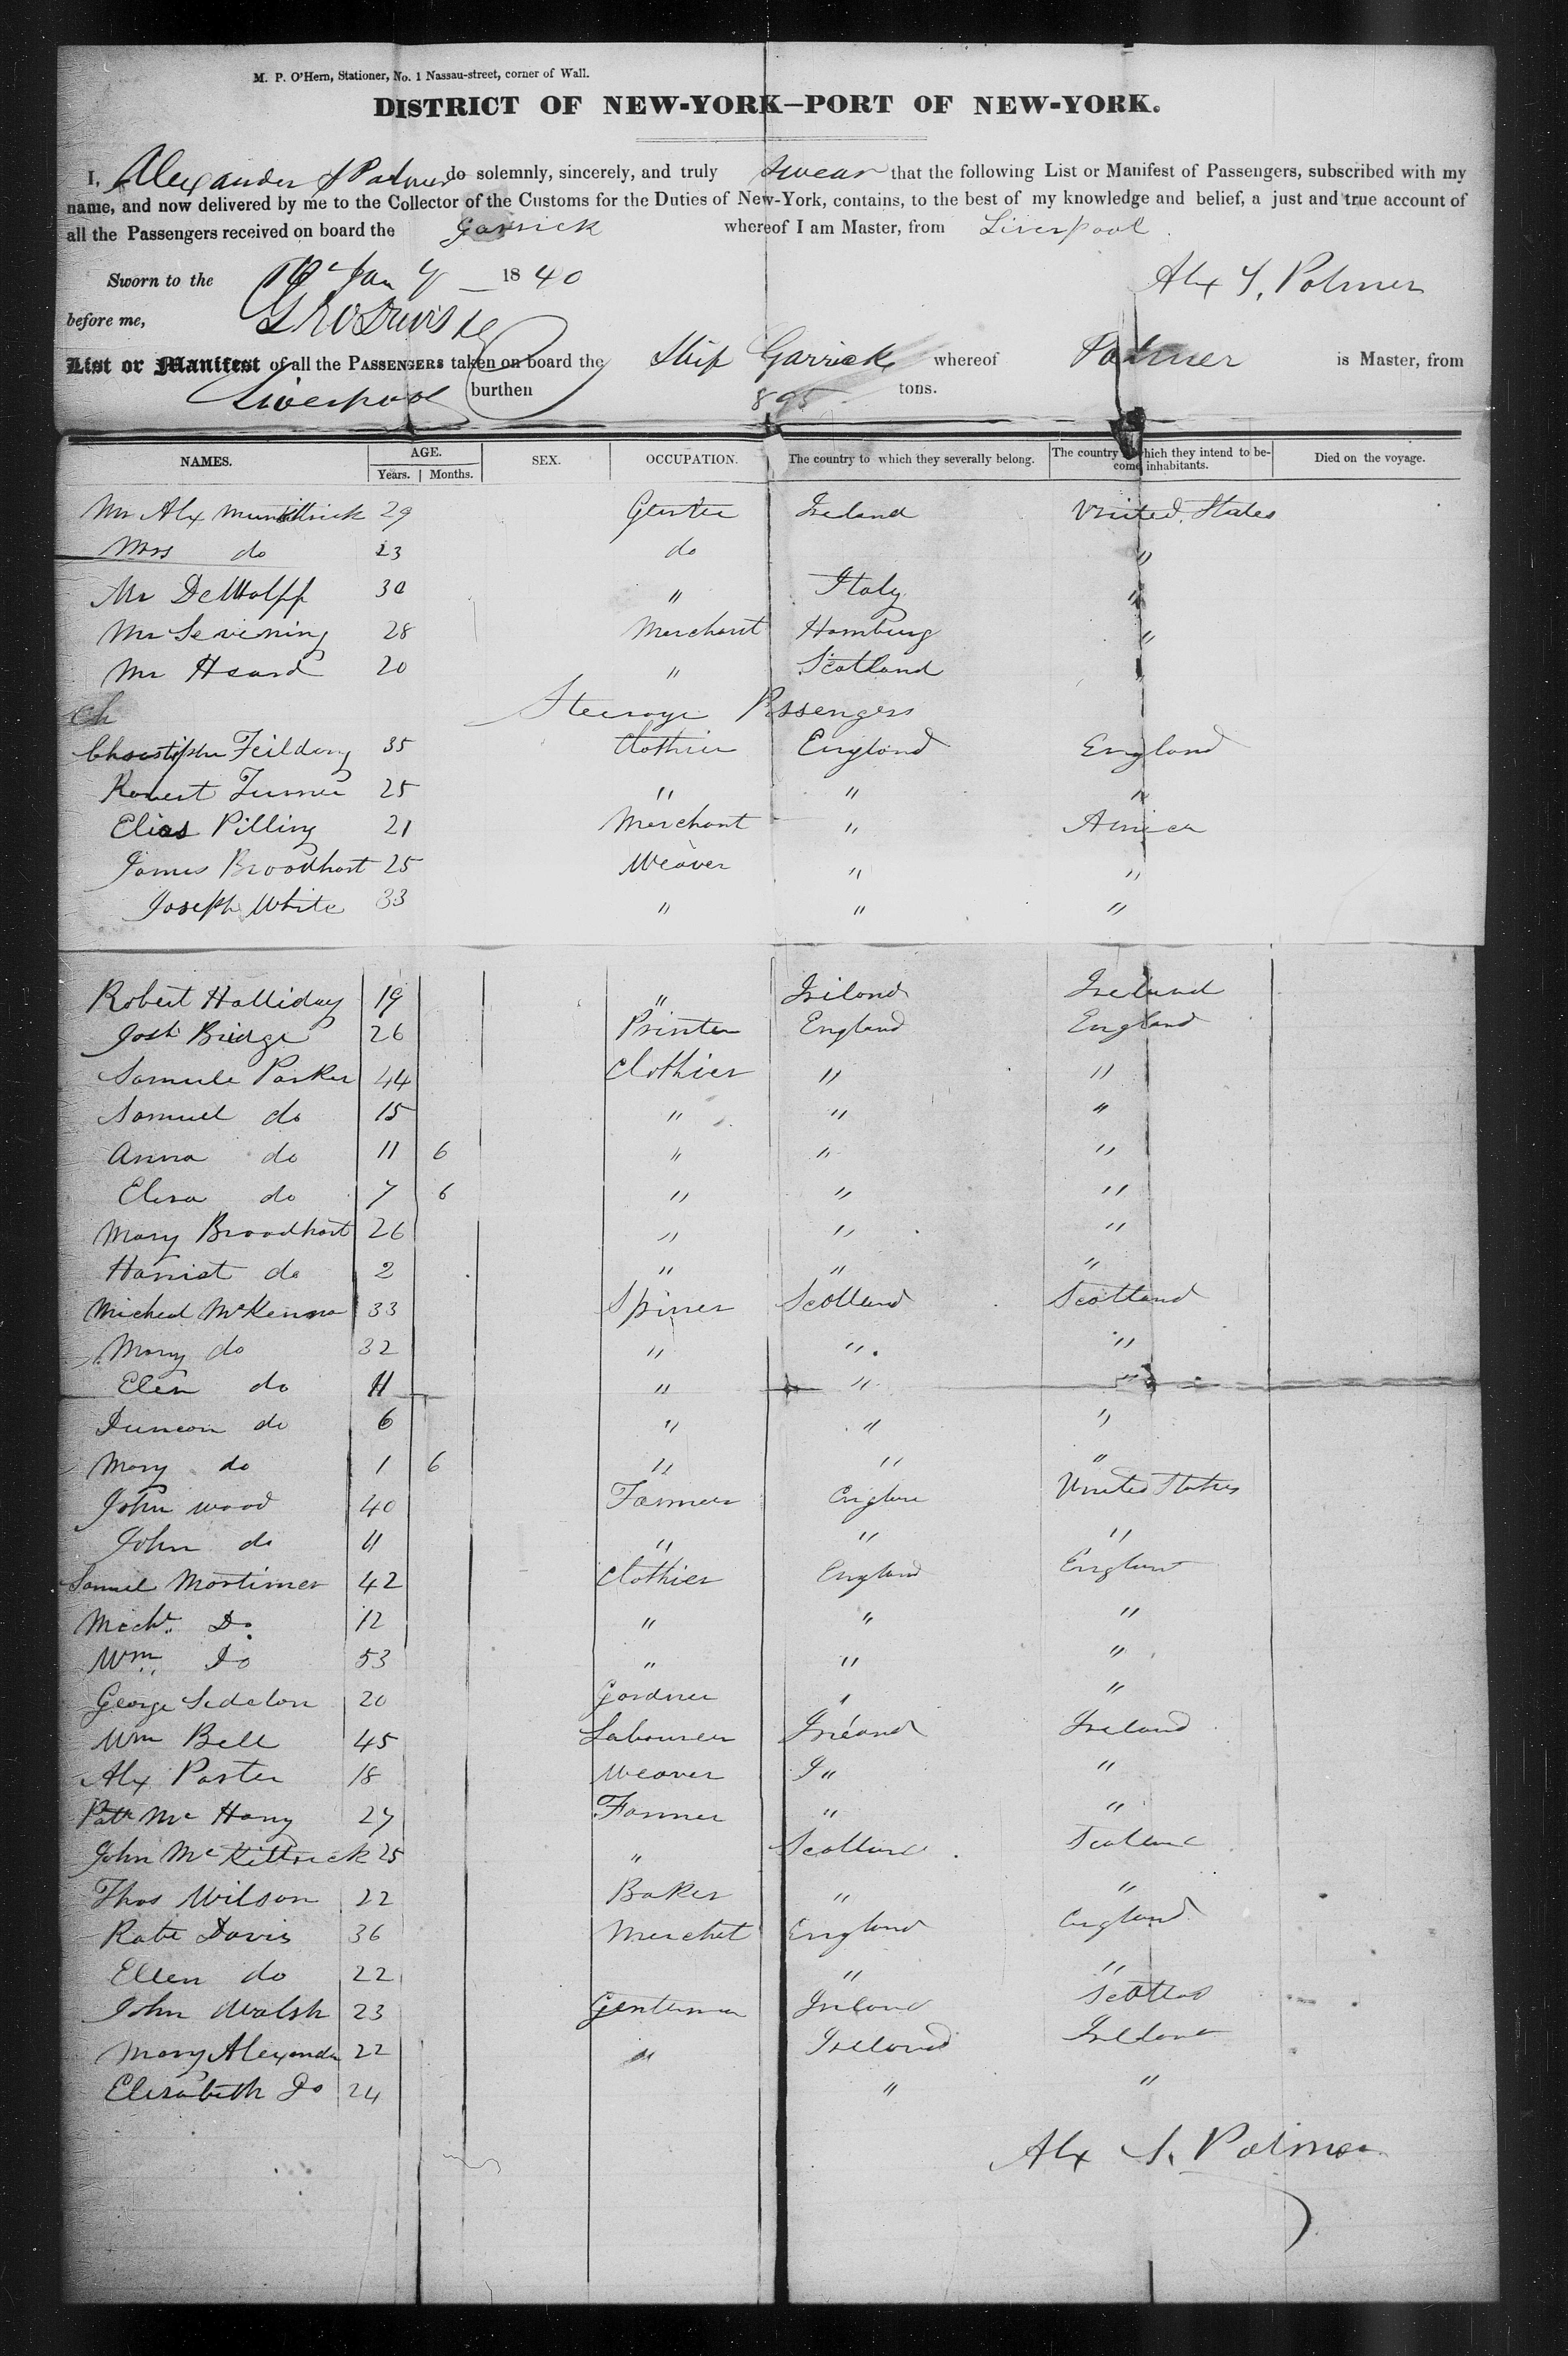 M. P. O'Hern, Stationer, No. 1 Nassau-street, corner of Wall.
DISTRICT OF NEW-YORK—PORT OF NEW-YORK.
I, Alexander S Palmer do solemnly, sincerely, and truly swear that the following List or Manifest of Passengers, subscribed with my
name, and now delivered by me to the Collector of the Customs for the Duties of New-York, contains, to the best of my knowledge and belief, a just and true account of
all the Passengers received on board the Garrick whereof I am Master, from Liverpool.
Sworn to the Jany 1840 Alx S. Palmer
before me,
List or Manifest of all the PASSENGERS taken on board the Ship Garrick whereof Palmer is Master, from
Liverpool burthen 895 tons.
NAMES. AGE. Years. Months. SEX. OCCUPATION. The country to which they severally belong. The country which they intend to become inhabitants. Died on the voyage.
Mr Alx 29 Ireland United States
Mrs do 23 do "
Mr DeWolff 30 " Italy "
Mr Sevening 28 Merchant Hamburg "
Mr Heard 20 " Scotland "
Ch Steerage Passengers
Christopher Feilding 35 Clothier England England
Robert Turner 25 " " "
Elias Pilling 21 Merchant " America
James Broadhart 25 Weaver " "
Joseph White 33 " " "
Robert Halliday 19 " Ireland Ireland
Josh Bridge 26 Printer England England
Samule Parker 44 Clothier " "
Samuel do 15 " " "
Anna do 11 6 " " "
Elisa do 7 6 " " "
Mary Broadhart 26 " " "
Harriat do 2 " " "
Micheal McKenna 33 Spiner Scotland Scotland
Mary do 32 " " "
Elen do 11 " " "
Duncan do 6 " " "
Mary do 1 6 " " "
John Wood 40 Farmer England United States
John do 11 " " "
Samuel Mortimer 42 Clothier England England
Michl. Do 12 " " "
Wm Do 53 " " "
George Sedelon 20 Gardner " "
Wm Bell 45 Labourer Ireland Ireland
Alx Porter 18 Weaver I " "
Patk Mc Hany 27 Farmer " "
John McKittrick 25 " Scotland Scotland
Thos Wilson 22 Baker " "
Robt Davis 36 Merchet England England
Ellen do 22 " "
John Walsh 23 Gentleman Ireland Scotland
Mary Alexander 22 " Ireland Ireland
Elisabeth Do 24 " "
Alx S. Palmer